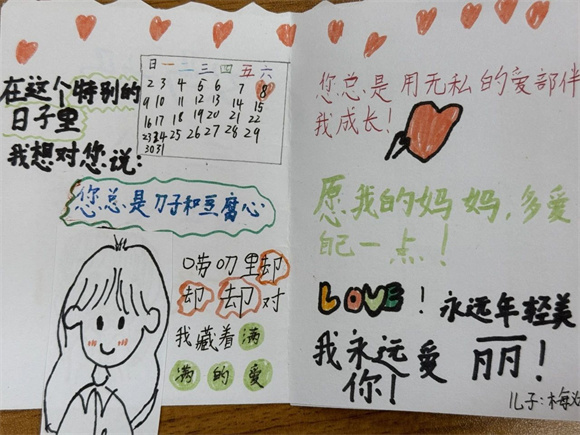 在这个特别的
日子里
我想对您说:
日 一 二 三 四 五 六
2 3 4 5 6 7 8
9 10 11 12 13 14 15
16 17 18 19 20 21 22
23 24 25 26 27 28 29
30 31
您总是刀子和豆腐心
唠叨里却
却却对
我藏着满
满的爱
您总是用无私的爱部伴
我成长!
愿我的妈妈,多爱
自己一点!
LOVE!永远年轻美
丽!
我永远爱
你!
儿子:梅